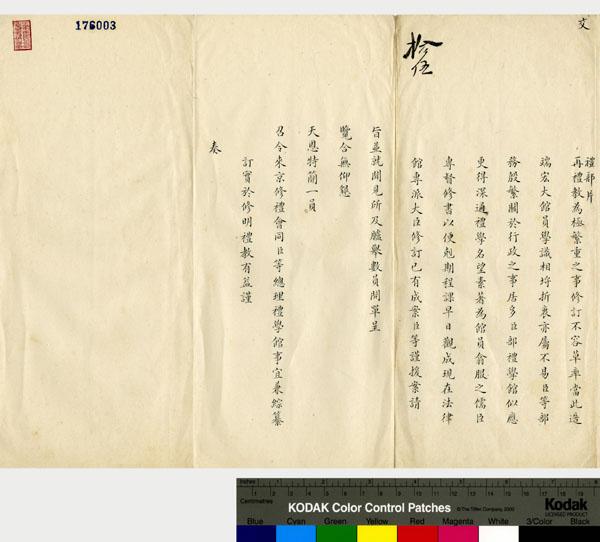 176003
文
拾
伍
禮部片
再禮教為極繁重之事修訂不容草率當此造
端宏大館員學識相埒折衷亦屬不易臣等部
務殷繁關於行政之事居多臣部禮學館似應
更得深通禮學名望素著為館員僉服之儒臣
專督修書以便剋期程課早日觀成現在法律
館專派大臣修訂已有成案臣等謹援案請
旨並就聞見所及臚舉數員開單呈
覽合無仰懇
天恩特簡一員
召令來京修禮會同臣等總理禮學館事宜兼綜纂
訂實於修明禮教有益謹
奏
Inches
Centimetres
KODAK Color Control Patches
© The Tiffen Company, 2000
Kodak
LICENSED PRODUCT
Blue Cyan Green Yellow Red Magenta White 3/Color Black